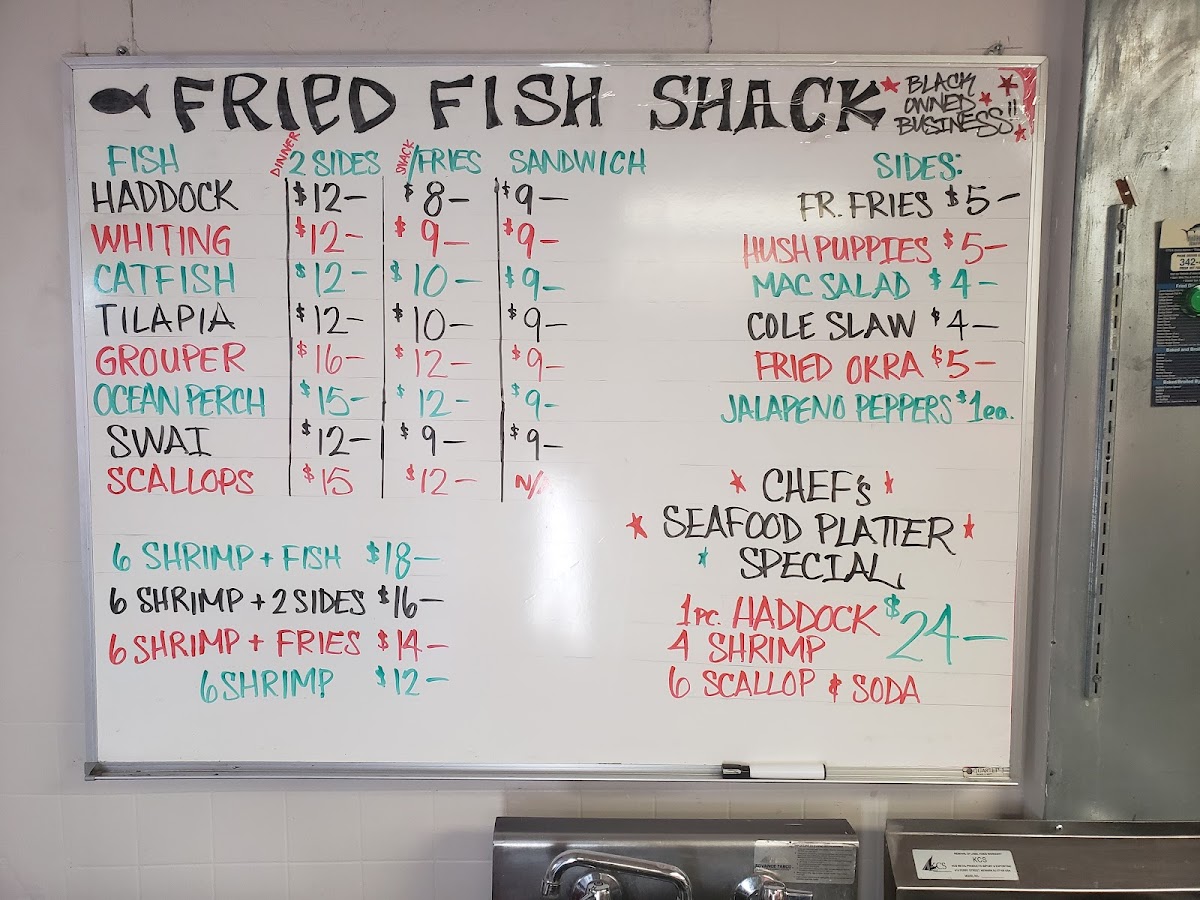 FRIED FISH SHACK
BLACK
OWNED
BUSINESS!!
FISH DINNER 2 SIDES SNACK /FRIES SANDWICH
HADDOCK $12– $8– $9–
WHITING $12– $9– $9–
CATFISH $12– $10– $9–
TILAPIA $12– $10– $9–
GROUPER $16– $12– $9–
OCEAN PERCH $15– $12– $9–
SWAI $12– $9– $9–
SCALLOPS $15 $12– N/A
6 SHRIMP + FISH $18–
6 SHRIMP + 2 SIDES $16–
6 SHRIMP + FRIES $14–
6 SHRIMP $12–
SIDES:
FR. FRIES $5–
HUSH PUPPIES $5–
MAC SALAD $4–
COLE SLAW $4–
FRIED OKRA $5–
JALAPENO PEPPERS $1ea.
CHEF's
SEAFOOD PLATTER
SPECIAL
1pc. HADDOCK $24–
4 SHRIMP
6 SCALLOP & SODA
342-
KCS
KCS